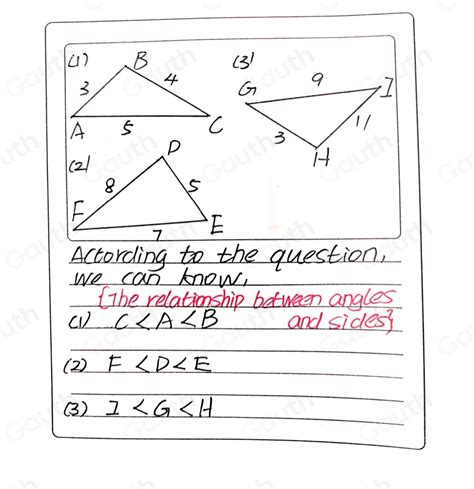 (1)
B
3
4
A
5
C
(3)
G
9
I
3
11
H
(2)
D
8
5
F
7
E
According to the question,
we can know,
{The relationship between angles
and sides}
(1) C < A < B
(2) F < D < E
(3) I < G < H
Gauth